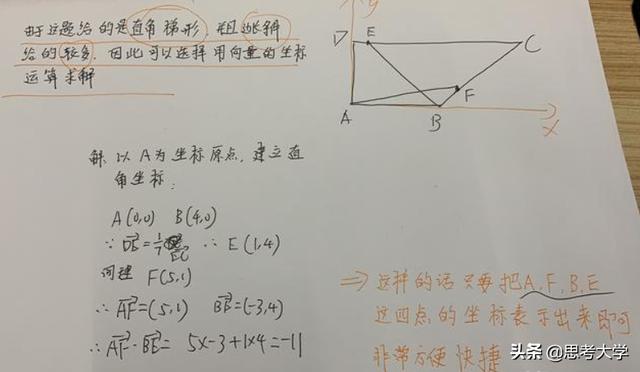 由于这题给的是直角梯形,且边长
给的较多,因此可以选择用向量的坐标
运算求解
y
D E C
F
A B X
解 以A为坐标原点,建立直
角坐标:
A(0,0) B(4,0)
∵ DE=1/7 EC ∴ E(1,4)
同理 F(5,1)
∴ AF=(5,1) BE=(-3,4)
∴ AF·BE= 5x-3+1x4=-11
⇒ 这样的话只要把A,F,B,E
这四点的坐标表示出来即可
非常方便快捷
头条@思考大学